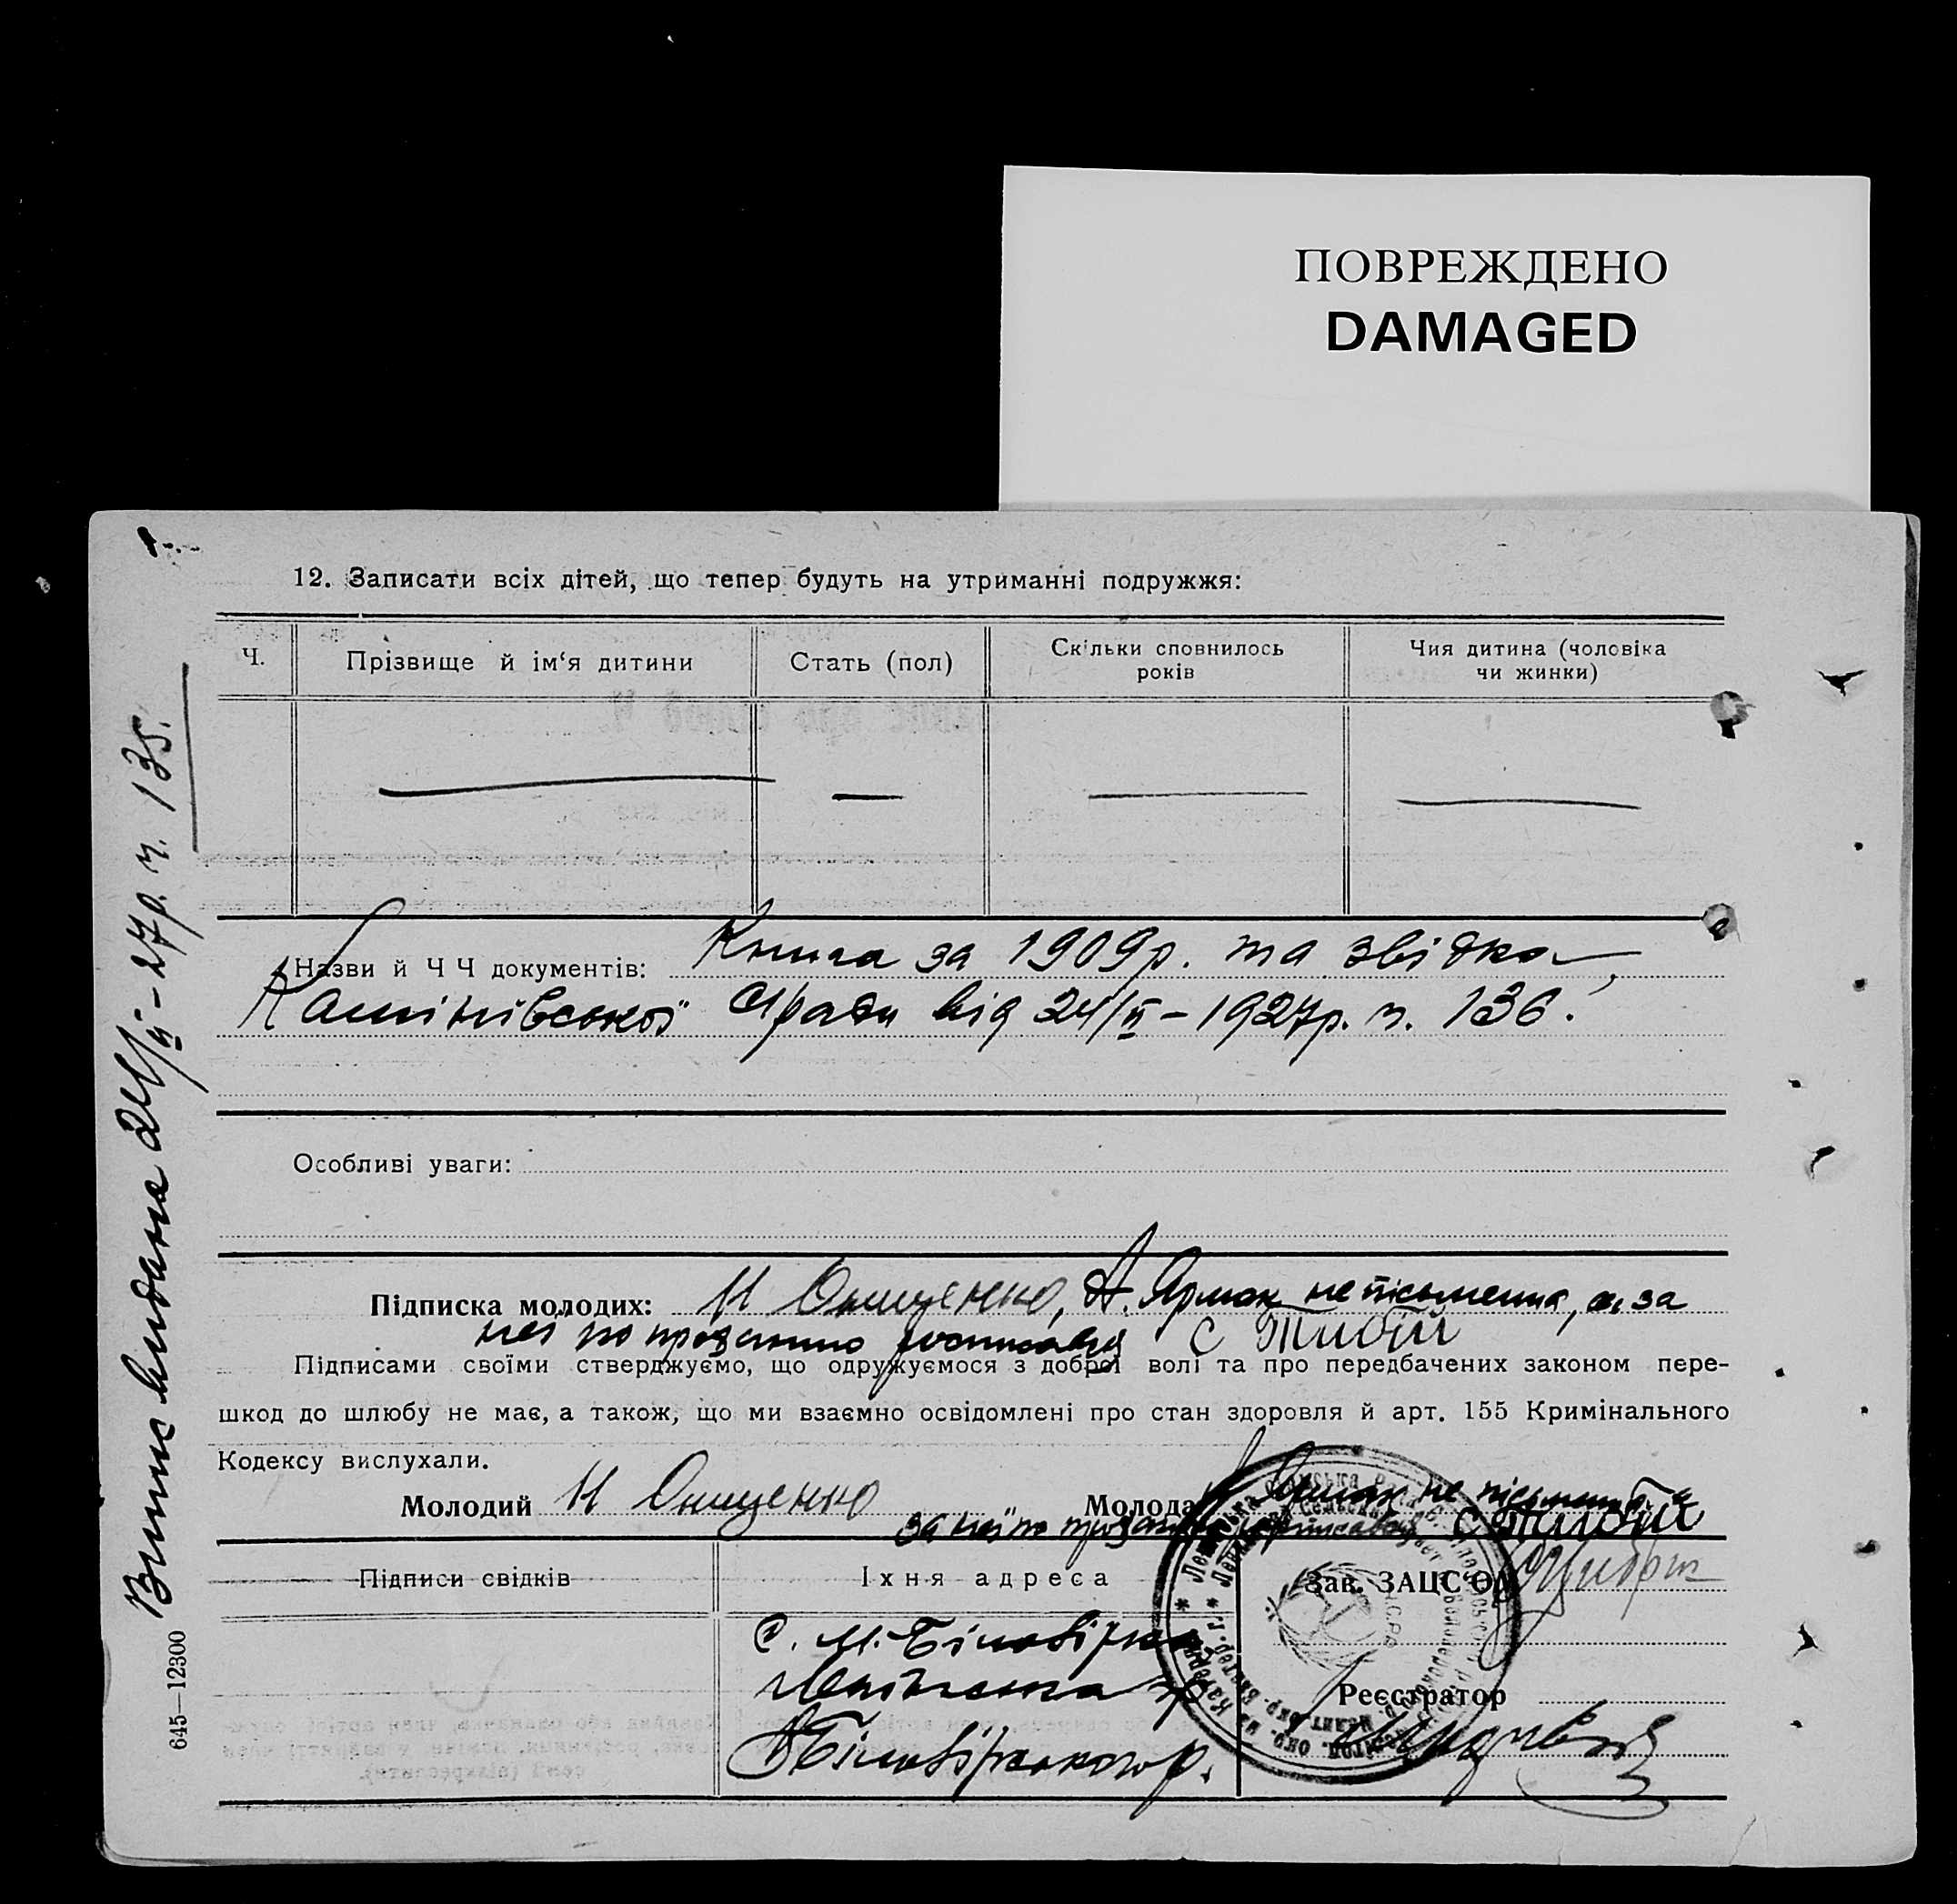 ПОВРЕЖДЕНО
DAMAGED
12. Записати всіх дітей, що тепер будуть на утриманні подружжя:
Ч.
Прізвище й ім‘я дитини
Стать (пол)
Скільки сповнилось
років
Чия дитина (чоловіка
чи жинки)
Назви й Ч Ч документів: Книга за 1909р. та звідка
С/ради від 24/II – 1927р. ч. 136.
Особливі уваги:
Підписка молодих: Н Онищенко, А. Ярмак не письменна, а за
неї по проханню росписався
Підписами своїми стверджуємо, що одружуємося з доброї волі та про передбачених законом пере-
шкод до шлюбу не має, а також, що ми взаємно освідомлені про стан здоровля й арт. 155 Кримінального
Кодексу вислухали.
Молодий Н Онищенко
Молода Ярмак не письменна
за неї по проханню росписався
Підписи свідків
Їхня адреса
Зав. ЗАЦС‘ом
Реєстратор
Випис видана 24/II – 27р. ч. 135.
645—12300